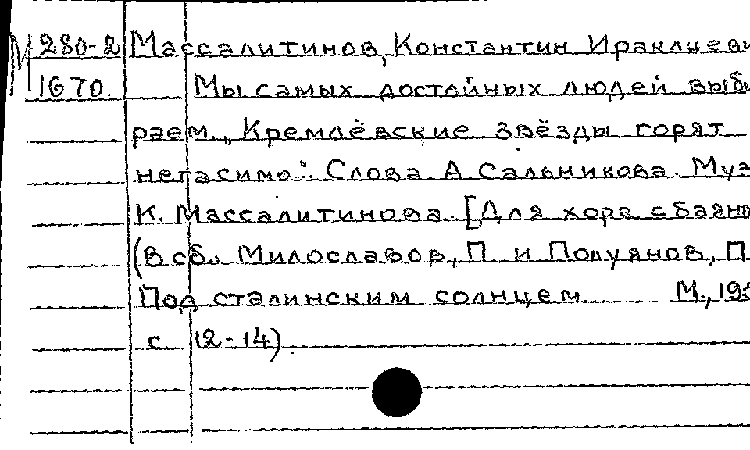 М 280-2 Массалитинов, Константин Ираклиеви
1670 Мы самых достойных людей выби
раем „Кремлёвские звёзды горят
негасимо". Слова А Сальникова Муз
К. Массалитинова [Для хора с баяно
(В сб. Милославов, П. и Полуянов, П.
Под сталинским солнцем М., 195
с 12-14).